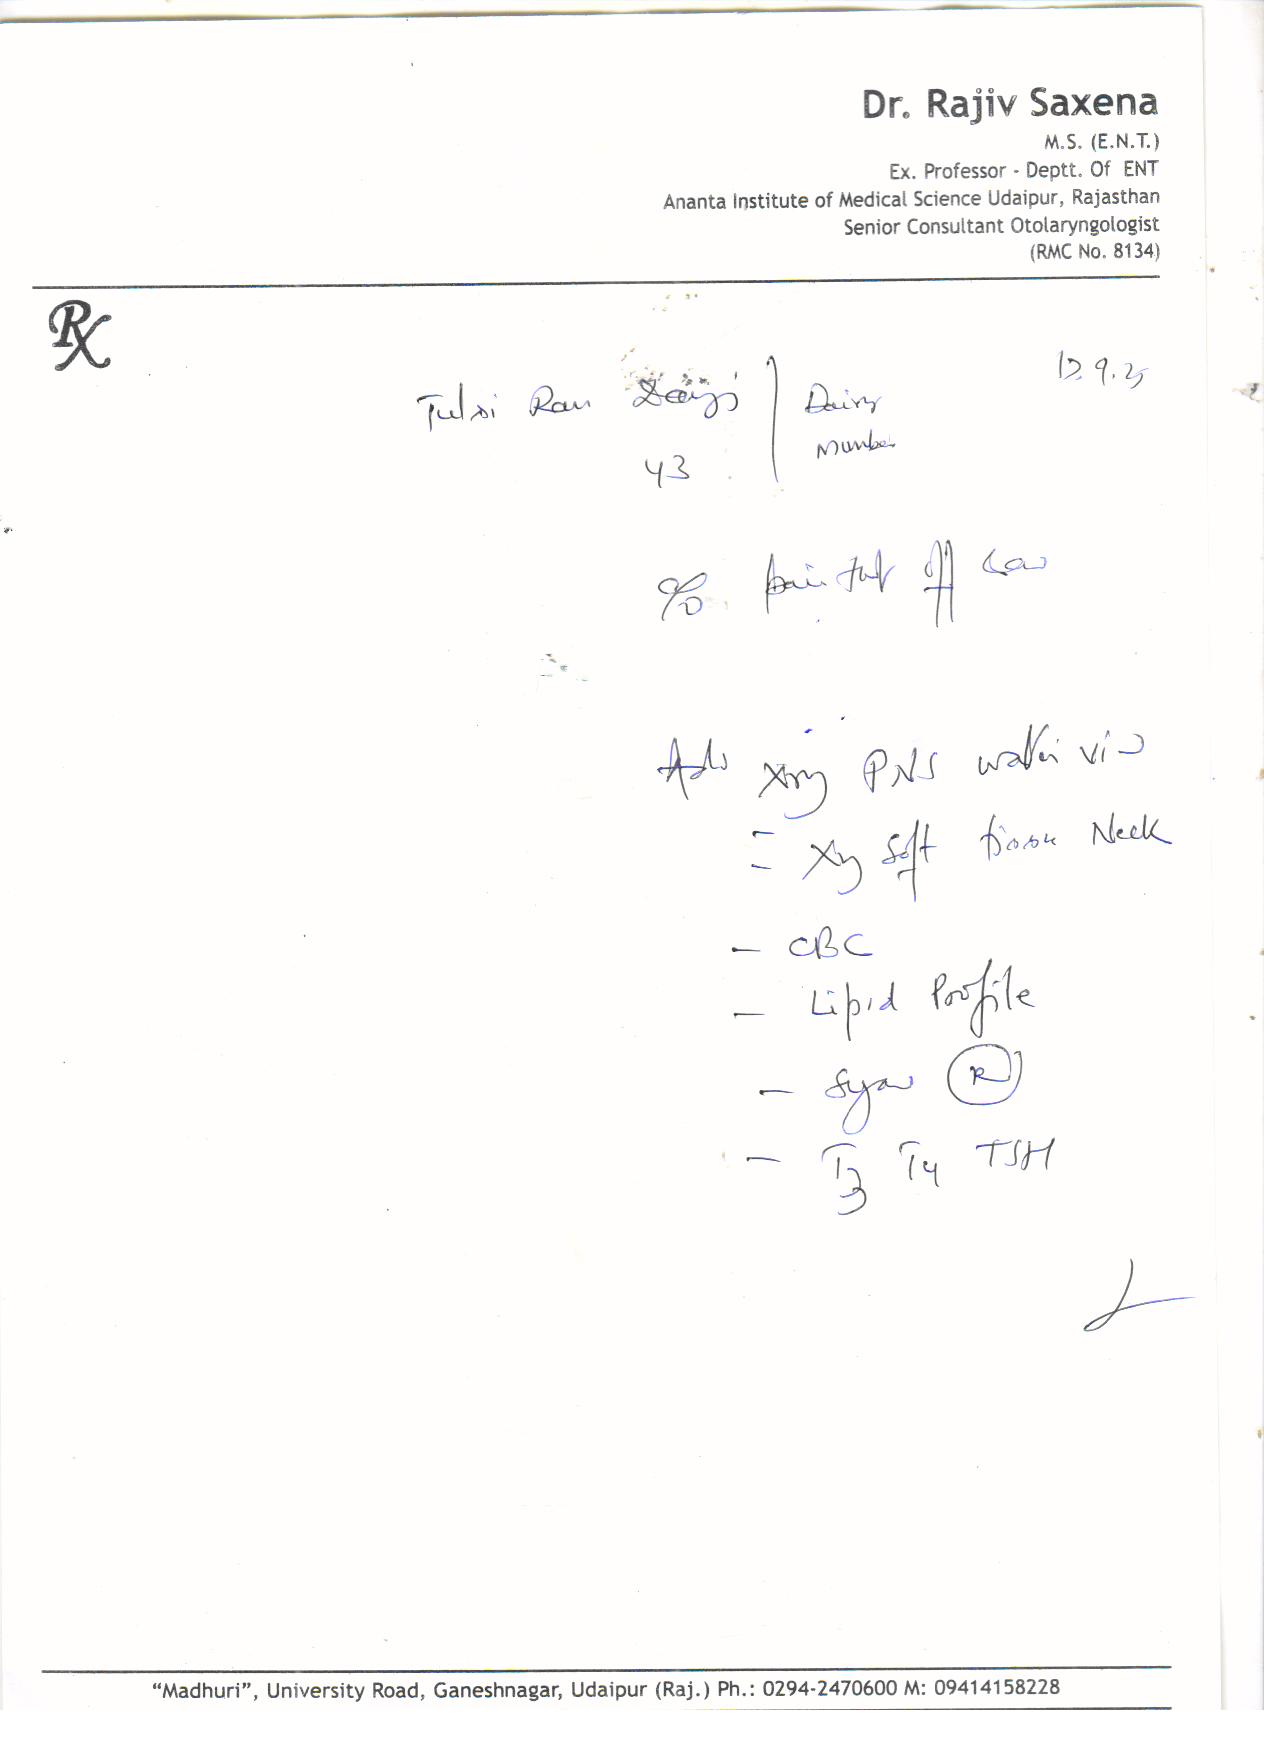 Dr. Rajiv Saxena
M.S. (E.N.T.)
Ex. Professor - Deptt. Of ENT
Ananta Institute of Medical Science Udaipur, Rajasthan
Senior Consultant Otolaryngologist
(RMC No. 8134)
Rx
12.9.25
Tulsi Ram | Dairy
43
C/O
Adv Xray PNS water view
= Xray Soft tissue Neck
- CBC
- Lipid Profile
- Sugar (R)
- T3 T4 TSH
"Madhuri", University Road, Ganeshnagar, Udaipur (Raj.) Ph.: 0294-2470600 M: 09414158228